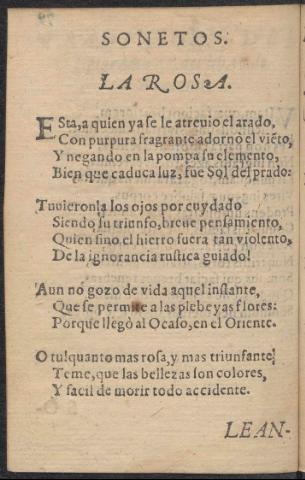 SONETOS.
LA ROSA.
ESta, a quien ya se le atreuio el arado,
Con purpura fragrante adornò el viẽto,
Y negando en la pompa su elemento,
Bien que caduca luz, fue Sol del prado:
Tuuieronla los ojos por cuydado
Siendo su triunfo, breue pensamiento,
Quien sino el hierro fuera tan violento,
De la ignorancia rustica guiado!
Aun no gozo de vida aquel instante,
Que se permite a las plebeyas flores:
Porque llegò al Ocaso, en el Oriente.
O tu! quanto mas rosa, y mas triunfante,
Teme, que las bellezas son colores,
Y facil de morir todo accidente.
LEAN-